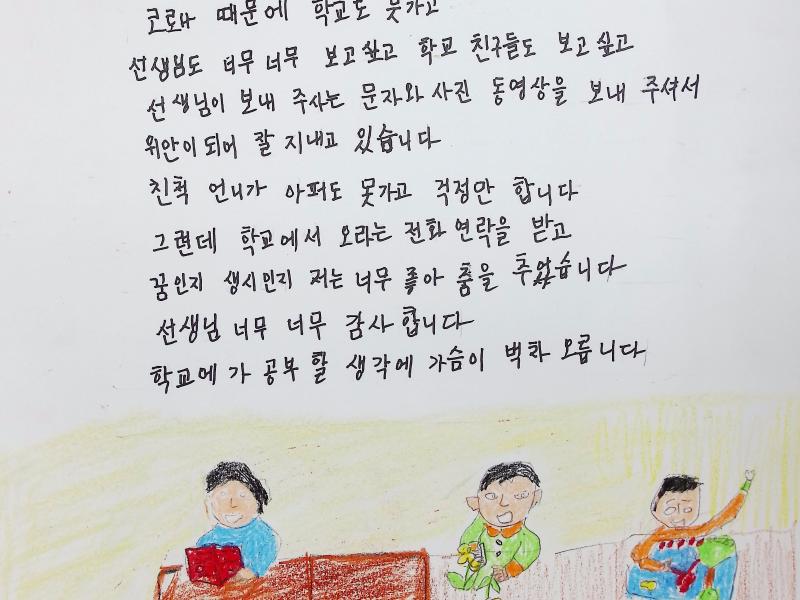 코로나 때문에 학교도 못가고
선생님도 너무 너무 보고싶고 학교 친구들도 보고싶고
선생님이 보내 주사는 문자와 사진 동영상을 보내 주셔서
위안이 되어 잘 지내고 있습니다
친척 언니가 아퍼도 못가고 걱정만 합니다
그런데 학교에서 오라는 전화 연락을 받고
꿈인지 생시인지 저는 너무 좋아 춤을 추었습니다
선생님 너무 너무 감사 합니다
학교에 가 공부 할 생각에 가슴이 벅차 오릅니다